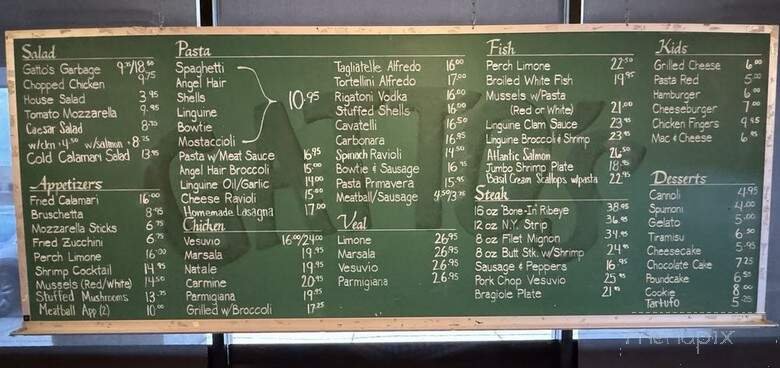 Salad
Gatto's Garbage 9.75/18.50
Chopped Chicken 9.75
House Salad 3.95
Tomato Mozzarella 9.95
Caesar Salad 8.75
w/ckn +4.50 w/salmon +8.75
Cold Calamari Salad 13.95
Appetizers
Fried Calamari 16.00
Bruschetta 8.95
Mozzarella Sticks 6.75
Fried Zucchini 6.75
Perch Limone 16.00
Shrimp Cocktail 14.95
Mussels (Red/White) 14.50
Stuffed Mushrooms 13.75
Meatball App (2) 10.00
Pasta
Spaghetti
Angel Hair
Shells
Linguine
Bowtie
Mostaccioli
10.95
Pasta w/Meat Sauce 16.95
Angel Hair Broccoli 15.00
Linguine Oil/Garlic 14.00
Cheese Ravioli 15.00
Homemade Lasagna 17.00
Tagliatelle Alfredo 16.00
Tortellini Alfredo 17.00
Rigatoni Vodka 16.00
Stuffed Shells 16.00
Cavatelli 16.50
Carbonara 16.95
Spinach Ravioli 14.50
Bowtie & Sausage 16.95
Pasta Primavera 15.95
Meatball/Sausage 4.50/3.75
Chicken
Vesuvio 16.00/24.00
Marsala 19.95
Natale 19.95
Carmine 20.95
Parmigiana 19.95
Grilled w/Broccoli 17.25
Veal
Limone 26.95
Marsala 26.95
Vesuvio 26.95
Parmigiana 26.95
Fish
Perch Limone 22.50
Broiled White Fish 19.95
Mussels w/Pasta
(Red or White) 21.00
Linguine Clam Sauce 23.95
Linguine Broccoli & Shrimp 23.95
Atlantic Salmon 26.50
Jumbo Shrimp Plate 18.95
Basil Cream Scallops w/pasta 22.95
Steak
16 oz Bone-In Ribeye 38.95
12 oz N.Y. Strip 36.95
8 oz Filet Mignon 34.95
8 oz Butt Stk. w/Shrimp 24.95
Sausage & Peppers 16.95
Pork Chop Vesuvio 25.95
Bragiole Plate 21.95
Kids
Grilled Cheese 6.00
Pasta Red 5.00
Hamburger 6.00
Cheeseburger 7.00
Chicken Fingers 9.95
Mac & Cheese 6.95
Desserts
Cannoli 4.95
Spumoni 4.00
Gelato 5.00
Tiramisu 6.50
Cheesecake 5.95
Chocolate Cake 7.25
Poundcake 6.50
Cookie 8.00
Tartufo 5.25
menupix